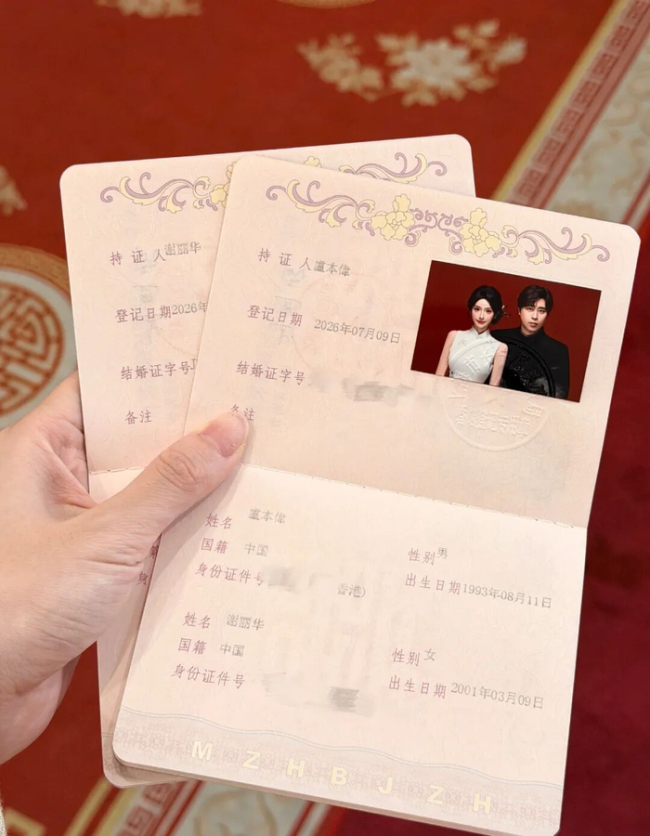 持 证 人 谢丽华
登记日期 2026年
结婚证字号
备注
持 证 人 盧本偉
登记日期 2026年07月09日
结婚证字号
备注
姓名 盧本偉
国籍 中国 性别 男
身份证件号 香港) 出生日期 1993年08月11日
姓名 谢丽华
国籍 中国 性别 女
身份证件号 出生日期 2001年03月09日
M Z H B J Z H